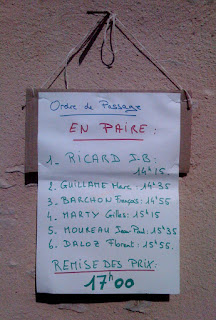 Ordre de Passage
EN PAIRE :
1_ RICARD J-B :
14h15.
2_ GUILLAME Marc : 14h35
3_ BARCHON François : 14h55
4_ MARTY Gilles : 15h15
5_ MOUREAU Jean-Paul : 15h35
6_ DALOZ Florent : 15h55.
REMISE DES PRIX :
17h00